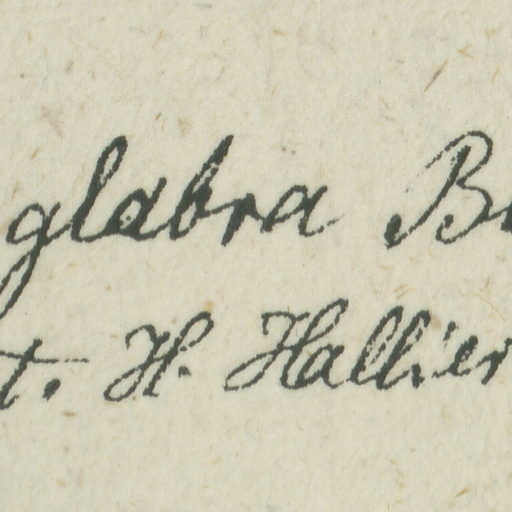 glabra
t. H. Hallier